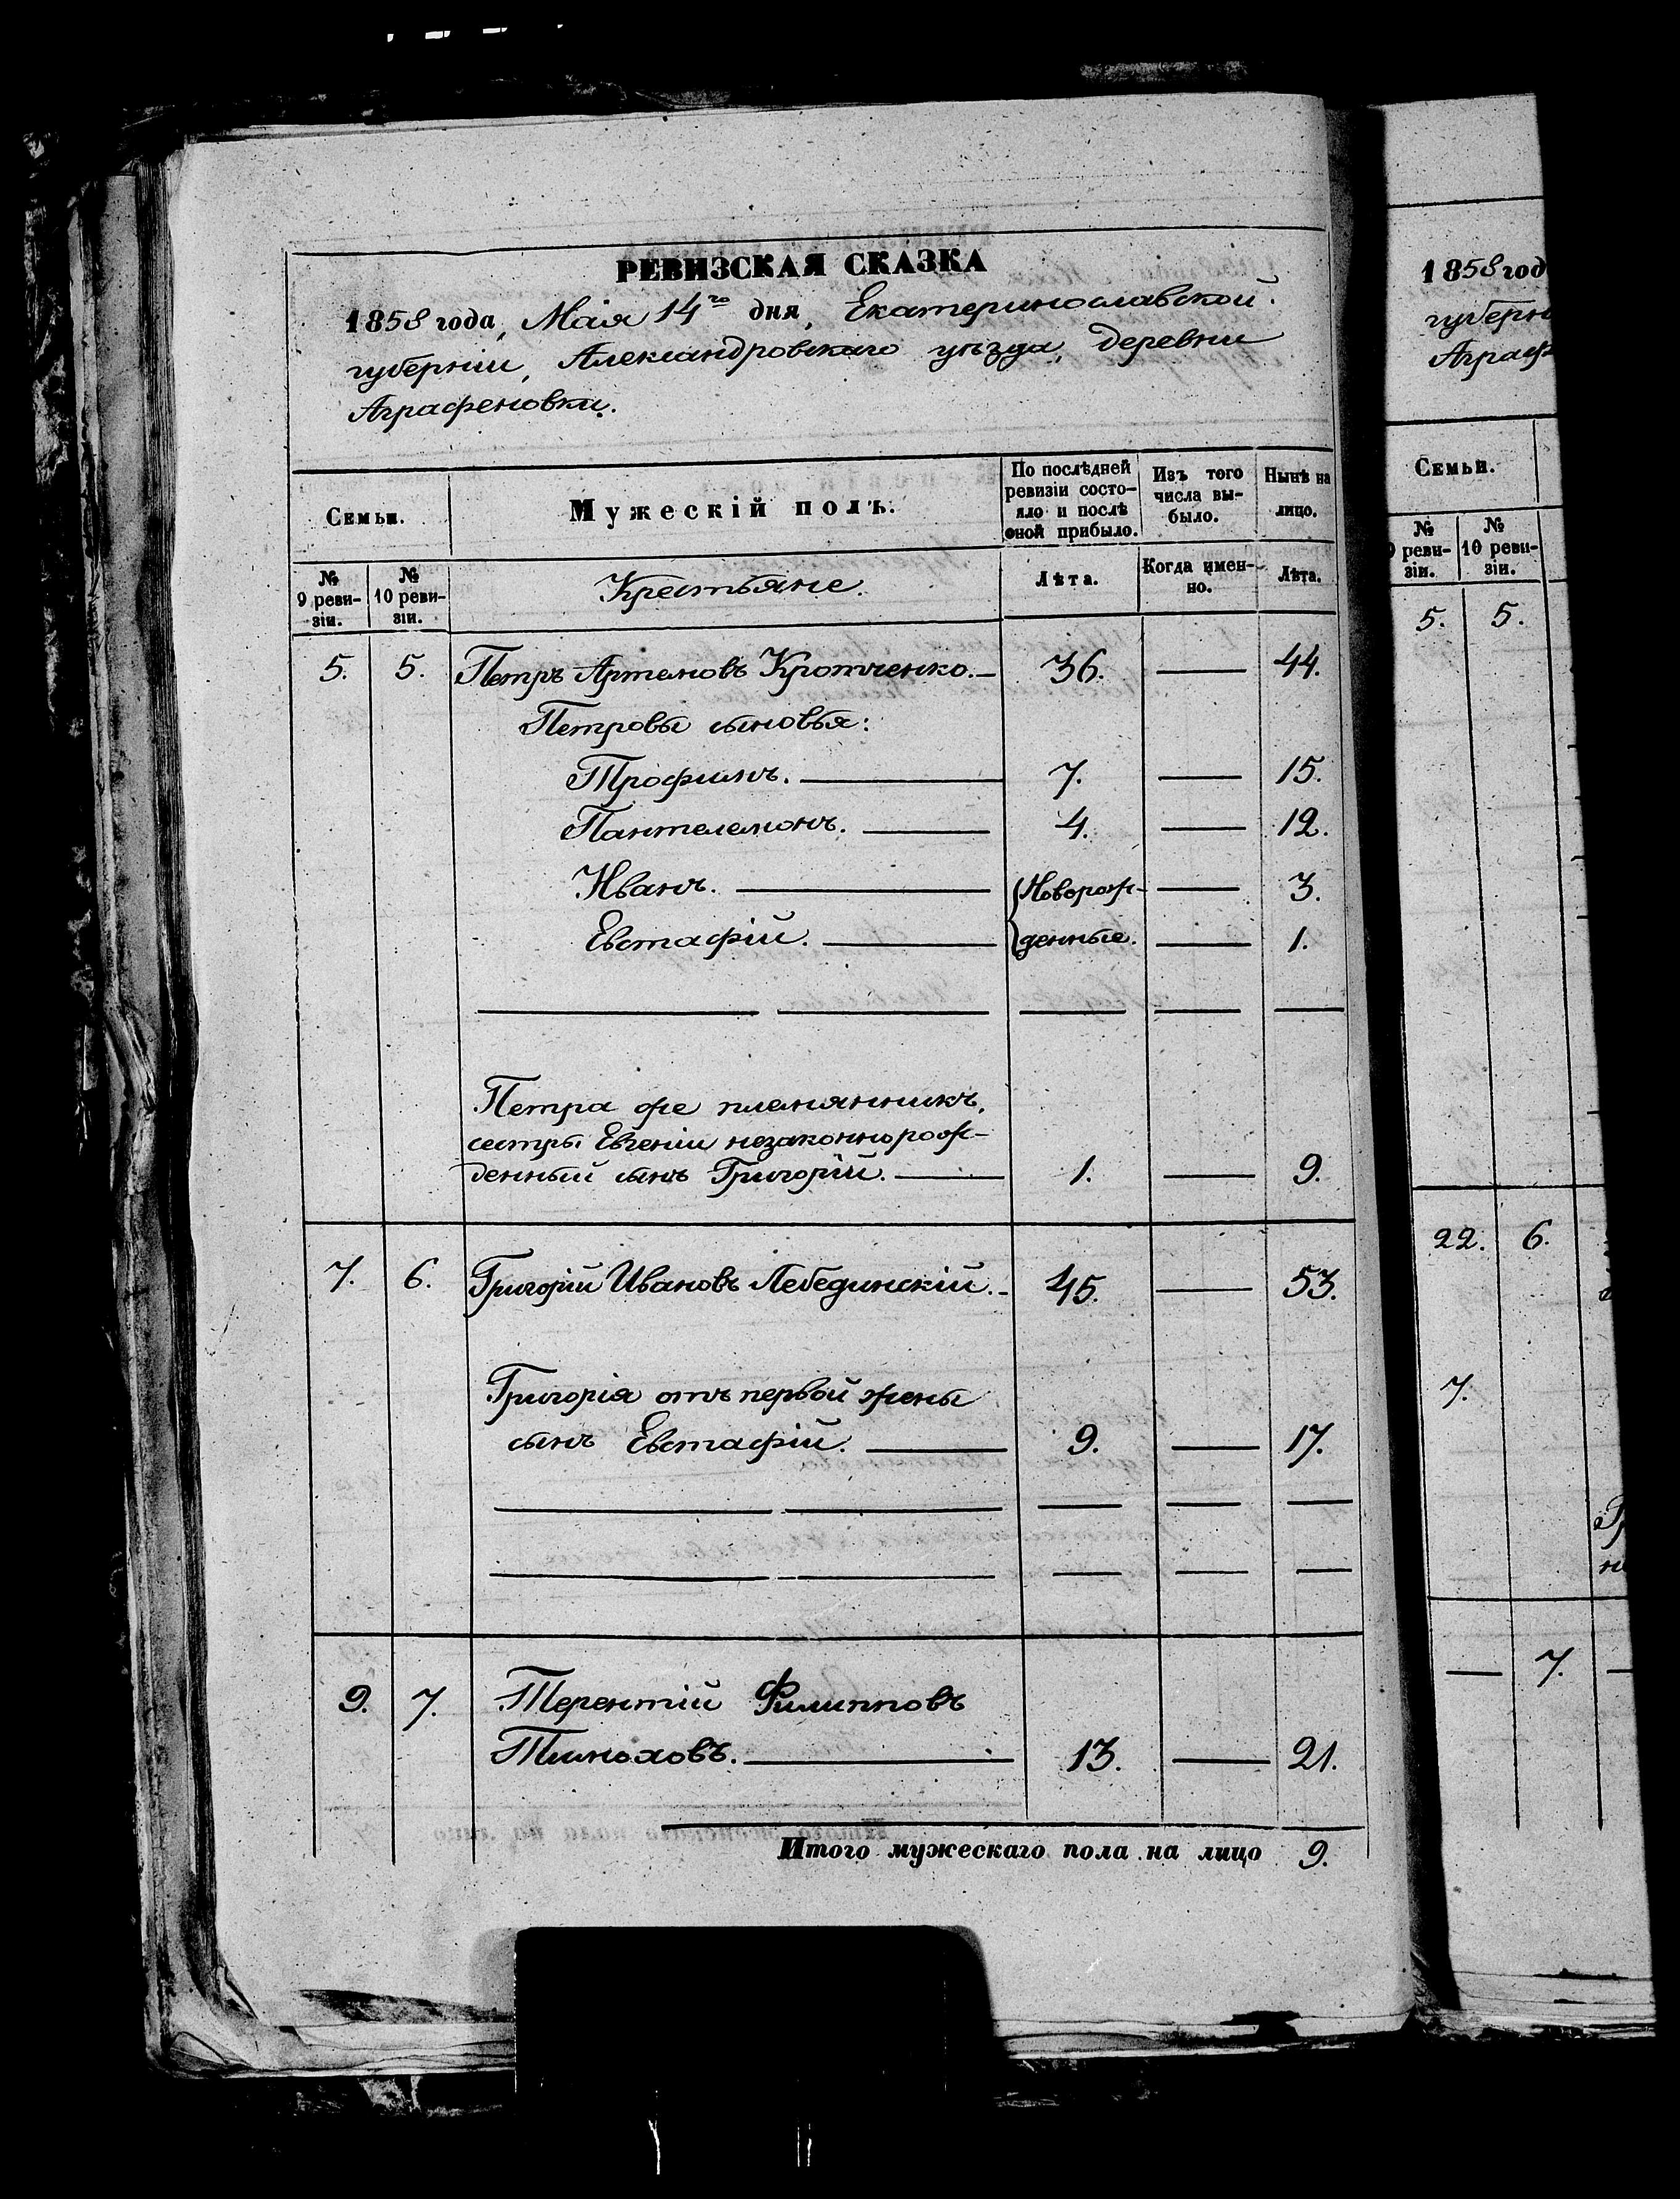 РЕВИЗСКАЯ СКАЗКА
1858 года, Мая 14го дня, Екатеринославской
губерніи, Александровскаго уѣзда, деревни
Аграфеновки.
Семьи.
Мужескій полъ.
По послѣдней ревизіи состо-
яло и послѣ оной прибыло.
Изъ того числа вы-
было.
Нынѣ на лицо.
№ 9 реви-
зіи.
№ 10 реви-
зіи.
Крестьяне.
Лѣта.
Когда имен-
но.
Лѣта.
5. 5. Петръ Артемовъ Кротченко. — 36. — 44.
Петровы сыновья:
Трофимъ. — 7. — 15.
Пантелемонъ. — 4. — 12.
Иванъ. — Новорож- — 3.
Евстафій. — денные. — 1.
Петра же племянникъ,
сестры Евгеніи незаконнорож-
денный сынъ Григорій. — 1. — 9.
7. 6. Григорій Ивановъ Лебединскій. — 45. — 53.
Григорія отъ первой жены
сынъ Евстафій. — 9. — 17.
9. 7. Терентій Филипповъ
13. — 21.
Итого мужескаго пола на лицо 9.
1858 год
губерн
Аграф
Семьи.
№ 9 реви-
зіи.
№ 10 реви-
зіи.
5. 5.
22. 6.
7.
— 7.